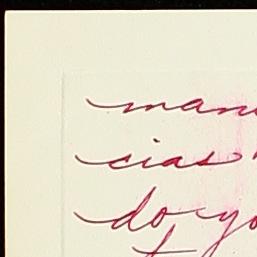 man
cias
do yo